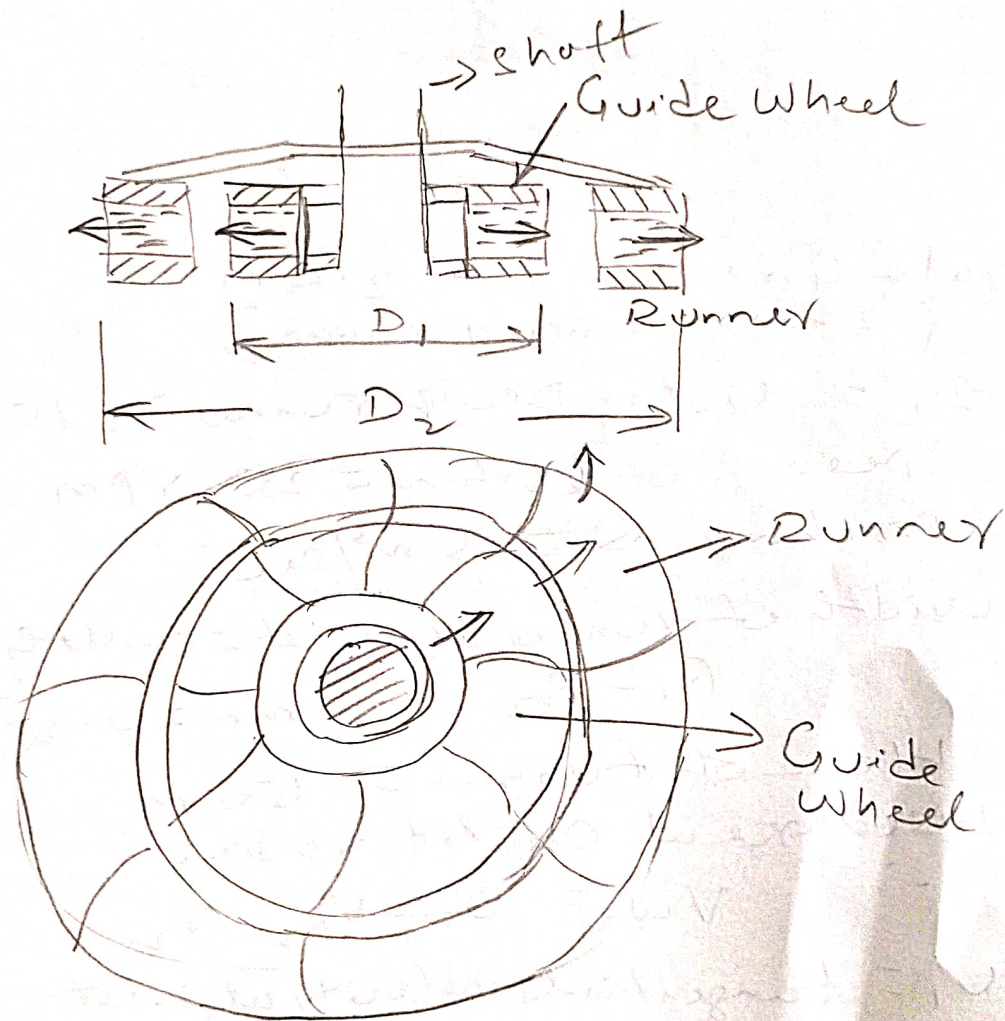 shaft
Guide Wheel
D1
Runner
D2
Runner
Guide
Wheel